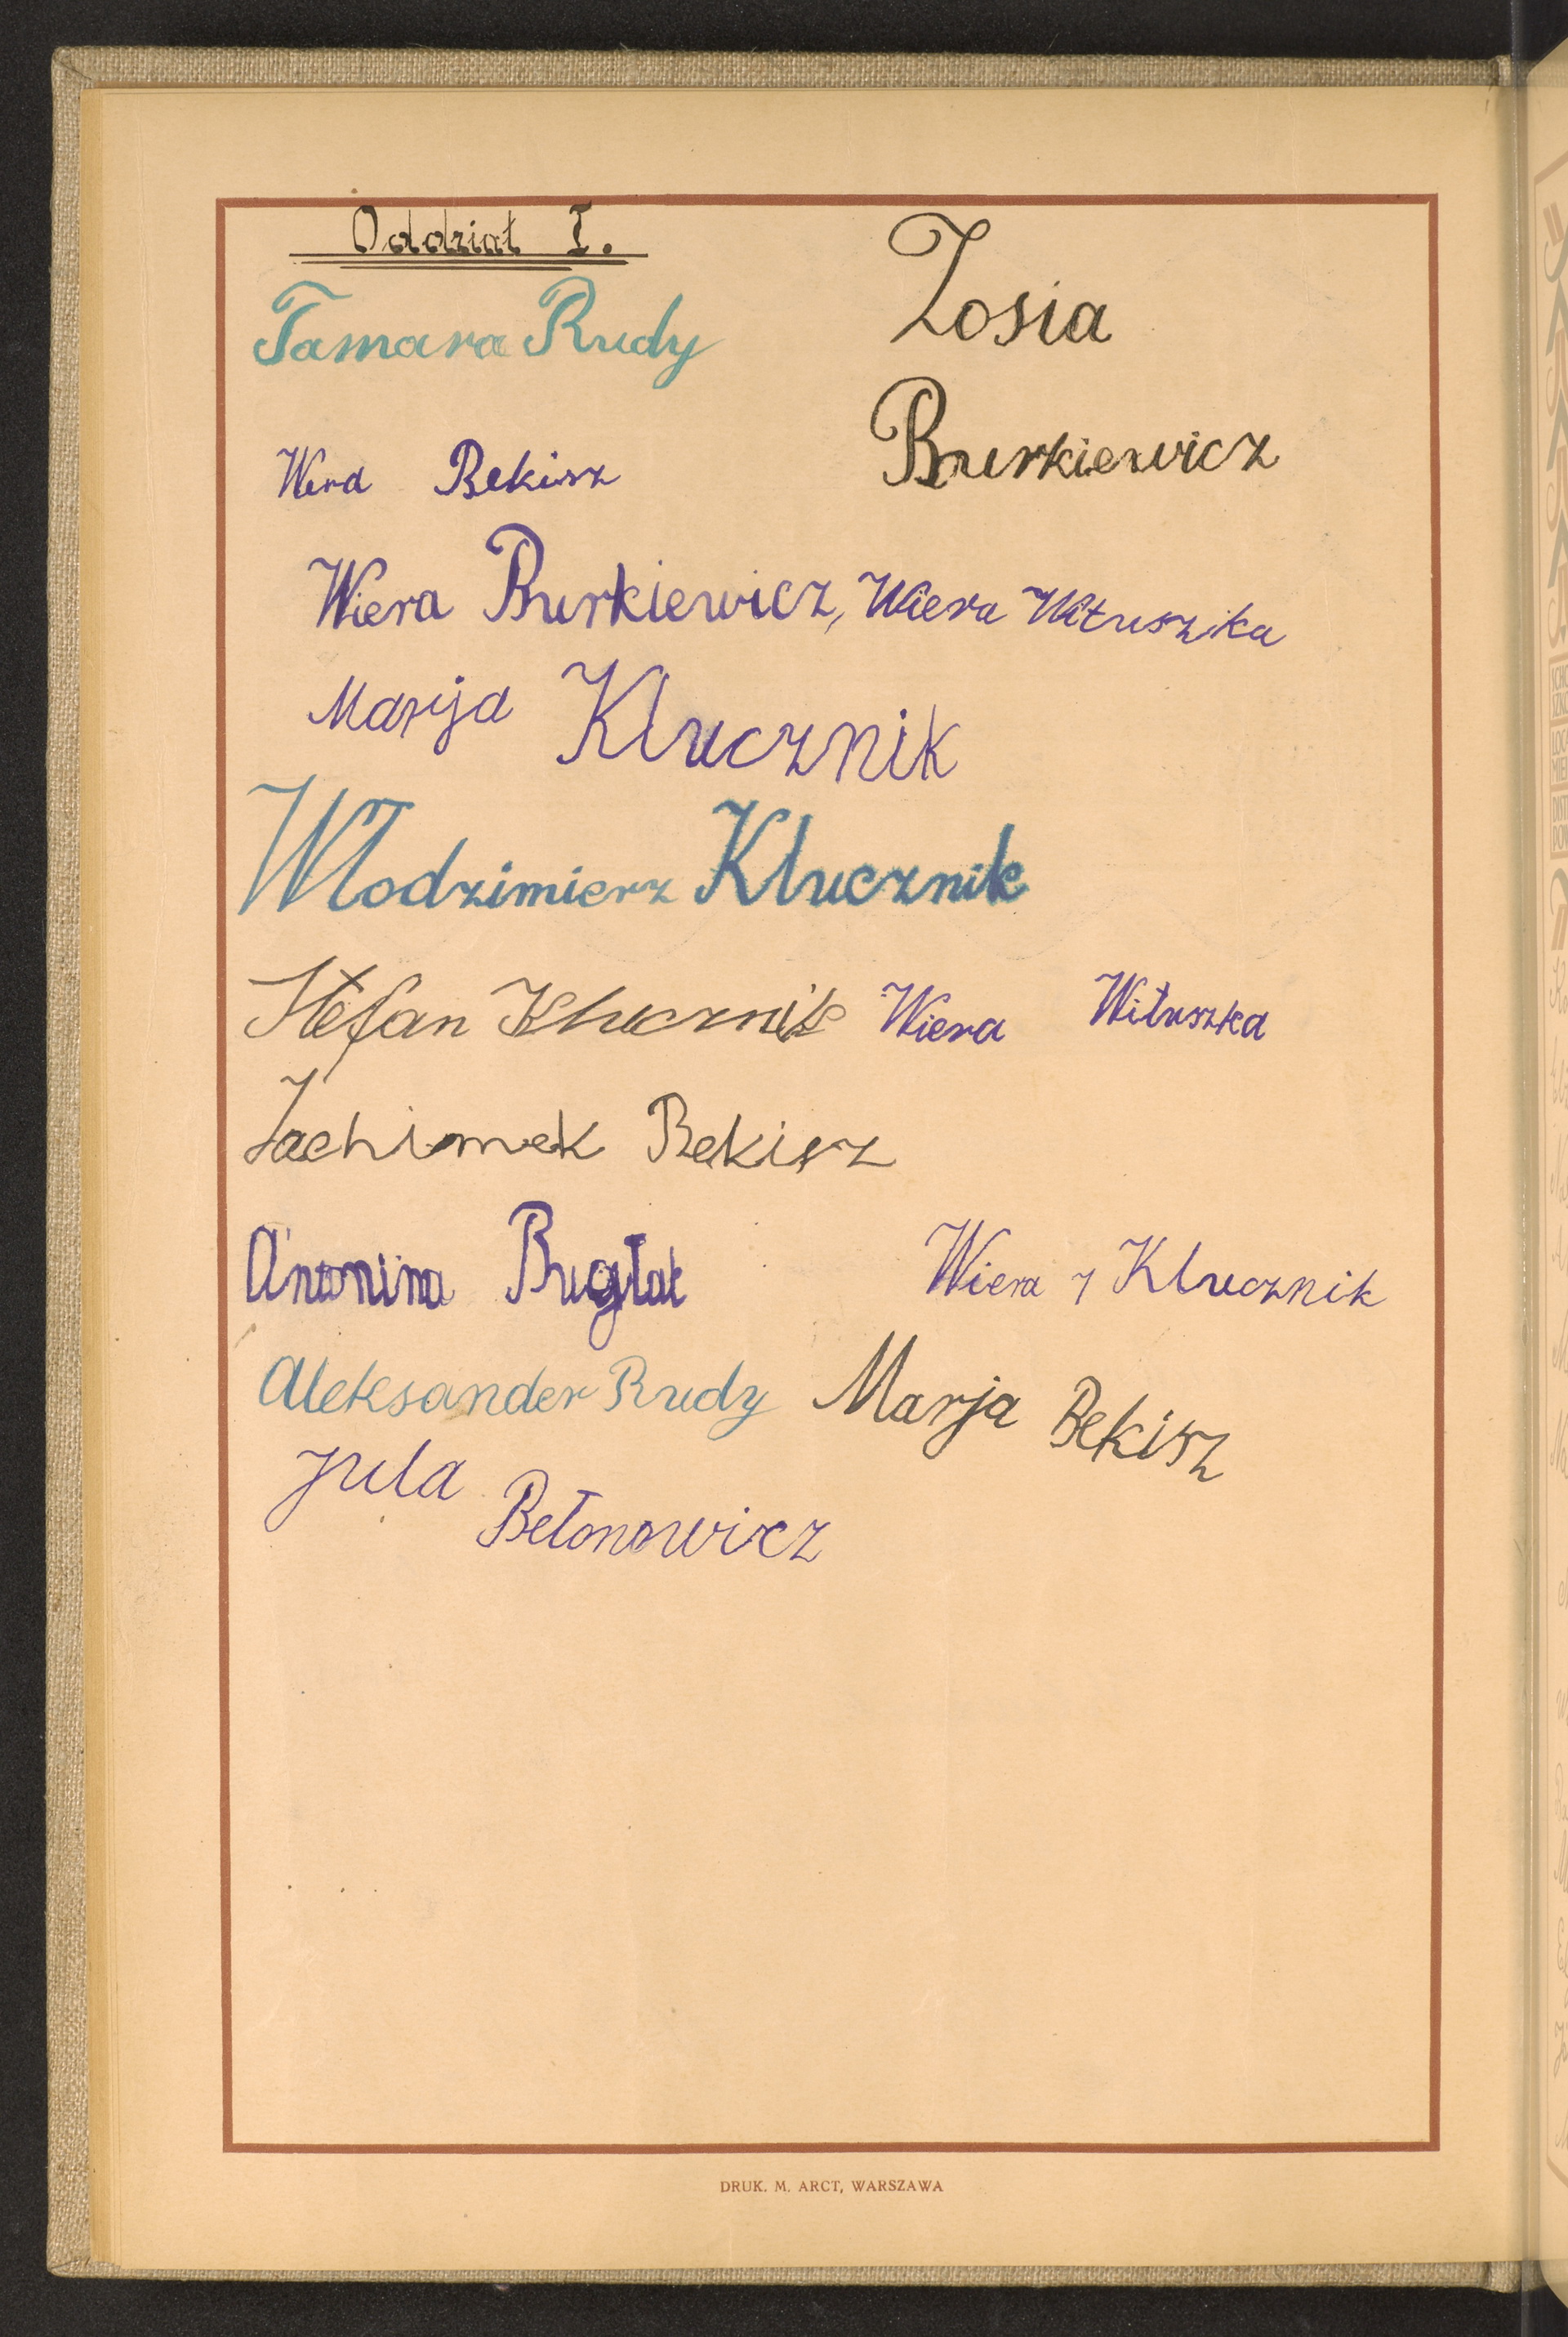 Oddział I.
Tamara Rudy
Zosia
Burkiewicz
Wera Bekisz
Wiera Burkiewicz, Wiera Wituszka
Marija Klucznik
Włodzimierz Klucznik
Stefan Klucznik Wiera Wituszka
Jachimek Bekisz
Antonina Bugłak
Wiera Klucznik
Aleksander Rudy Marja Bekisz
Jula Bełonowicz
DRUK. M. ARCT, WARSZAWA